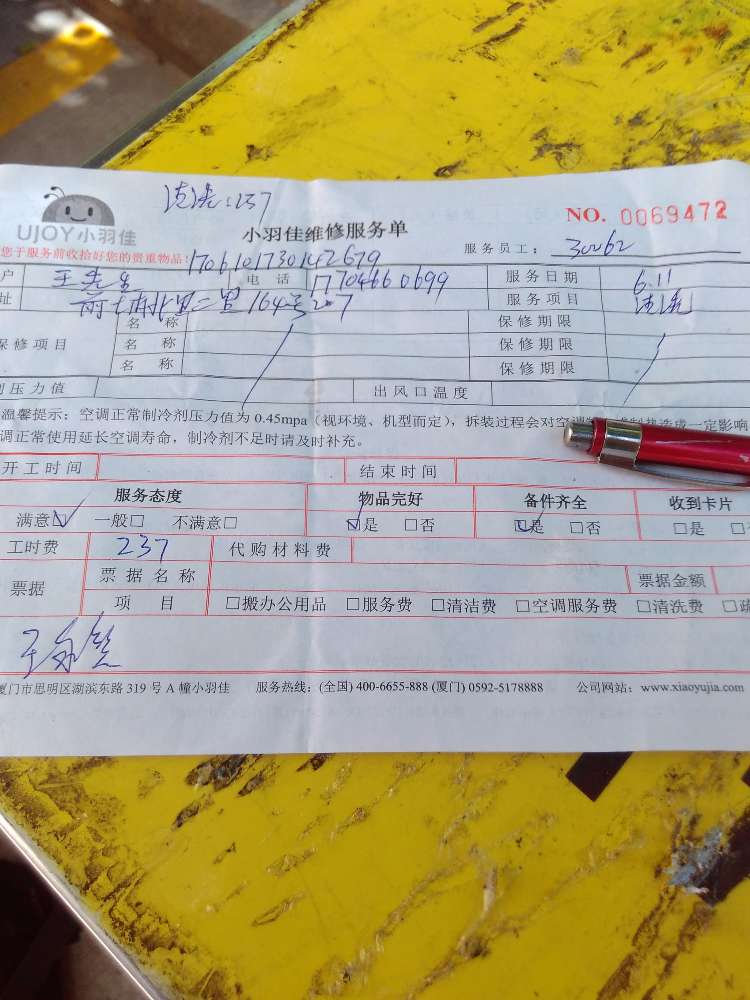 清洗:237
NO. 0069472
UJOY小羽佳
小羽佳维修服务单
您于服务前收拾好您的贵重物品!
服务员工: 30062
1706101730142679
户 王先生 电话 17704660699 服务日期 6.11
址 里二里164号207 服务项目 清洗
名 称 保修期限
保修项目 名 称 保修期限
名 称 保修期限
剂压力值 出风口温度
温馨提示:空调正常制冷剂压力值为 0.45mpa(视环境、机型而定),拆装过程会对空调 造成一定影响
调正常使用延长空调寿命,制冷剂不足时请及时补充。
开工时间 结束时间
服务态度 物品完好 备件齐全 收到卡片
满意☑ 一般□ 不满意□ ☑是 □否 ☑是 □否 □是 □
工时费 237 代购材料费
票据 票据名称 票据金额
项 目 □搬办公用品 □服务费 □清洁费 □空调服务费 □清洗费 □疏
厦门市思明区湖滨东路 319 号 A 幢小羽佳 服务热线:(全国) 400-6655-888 (厦门) 0592-5178888 公司网站:www.xiaoyujia.com